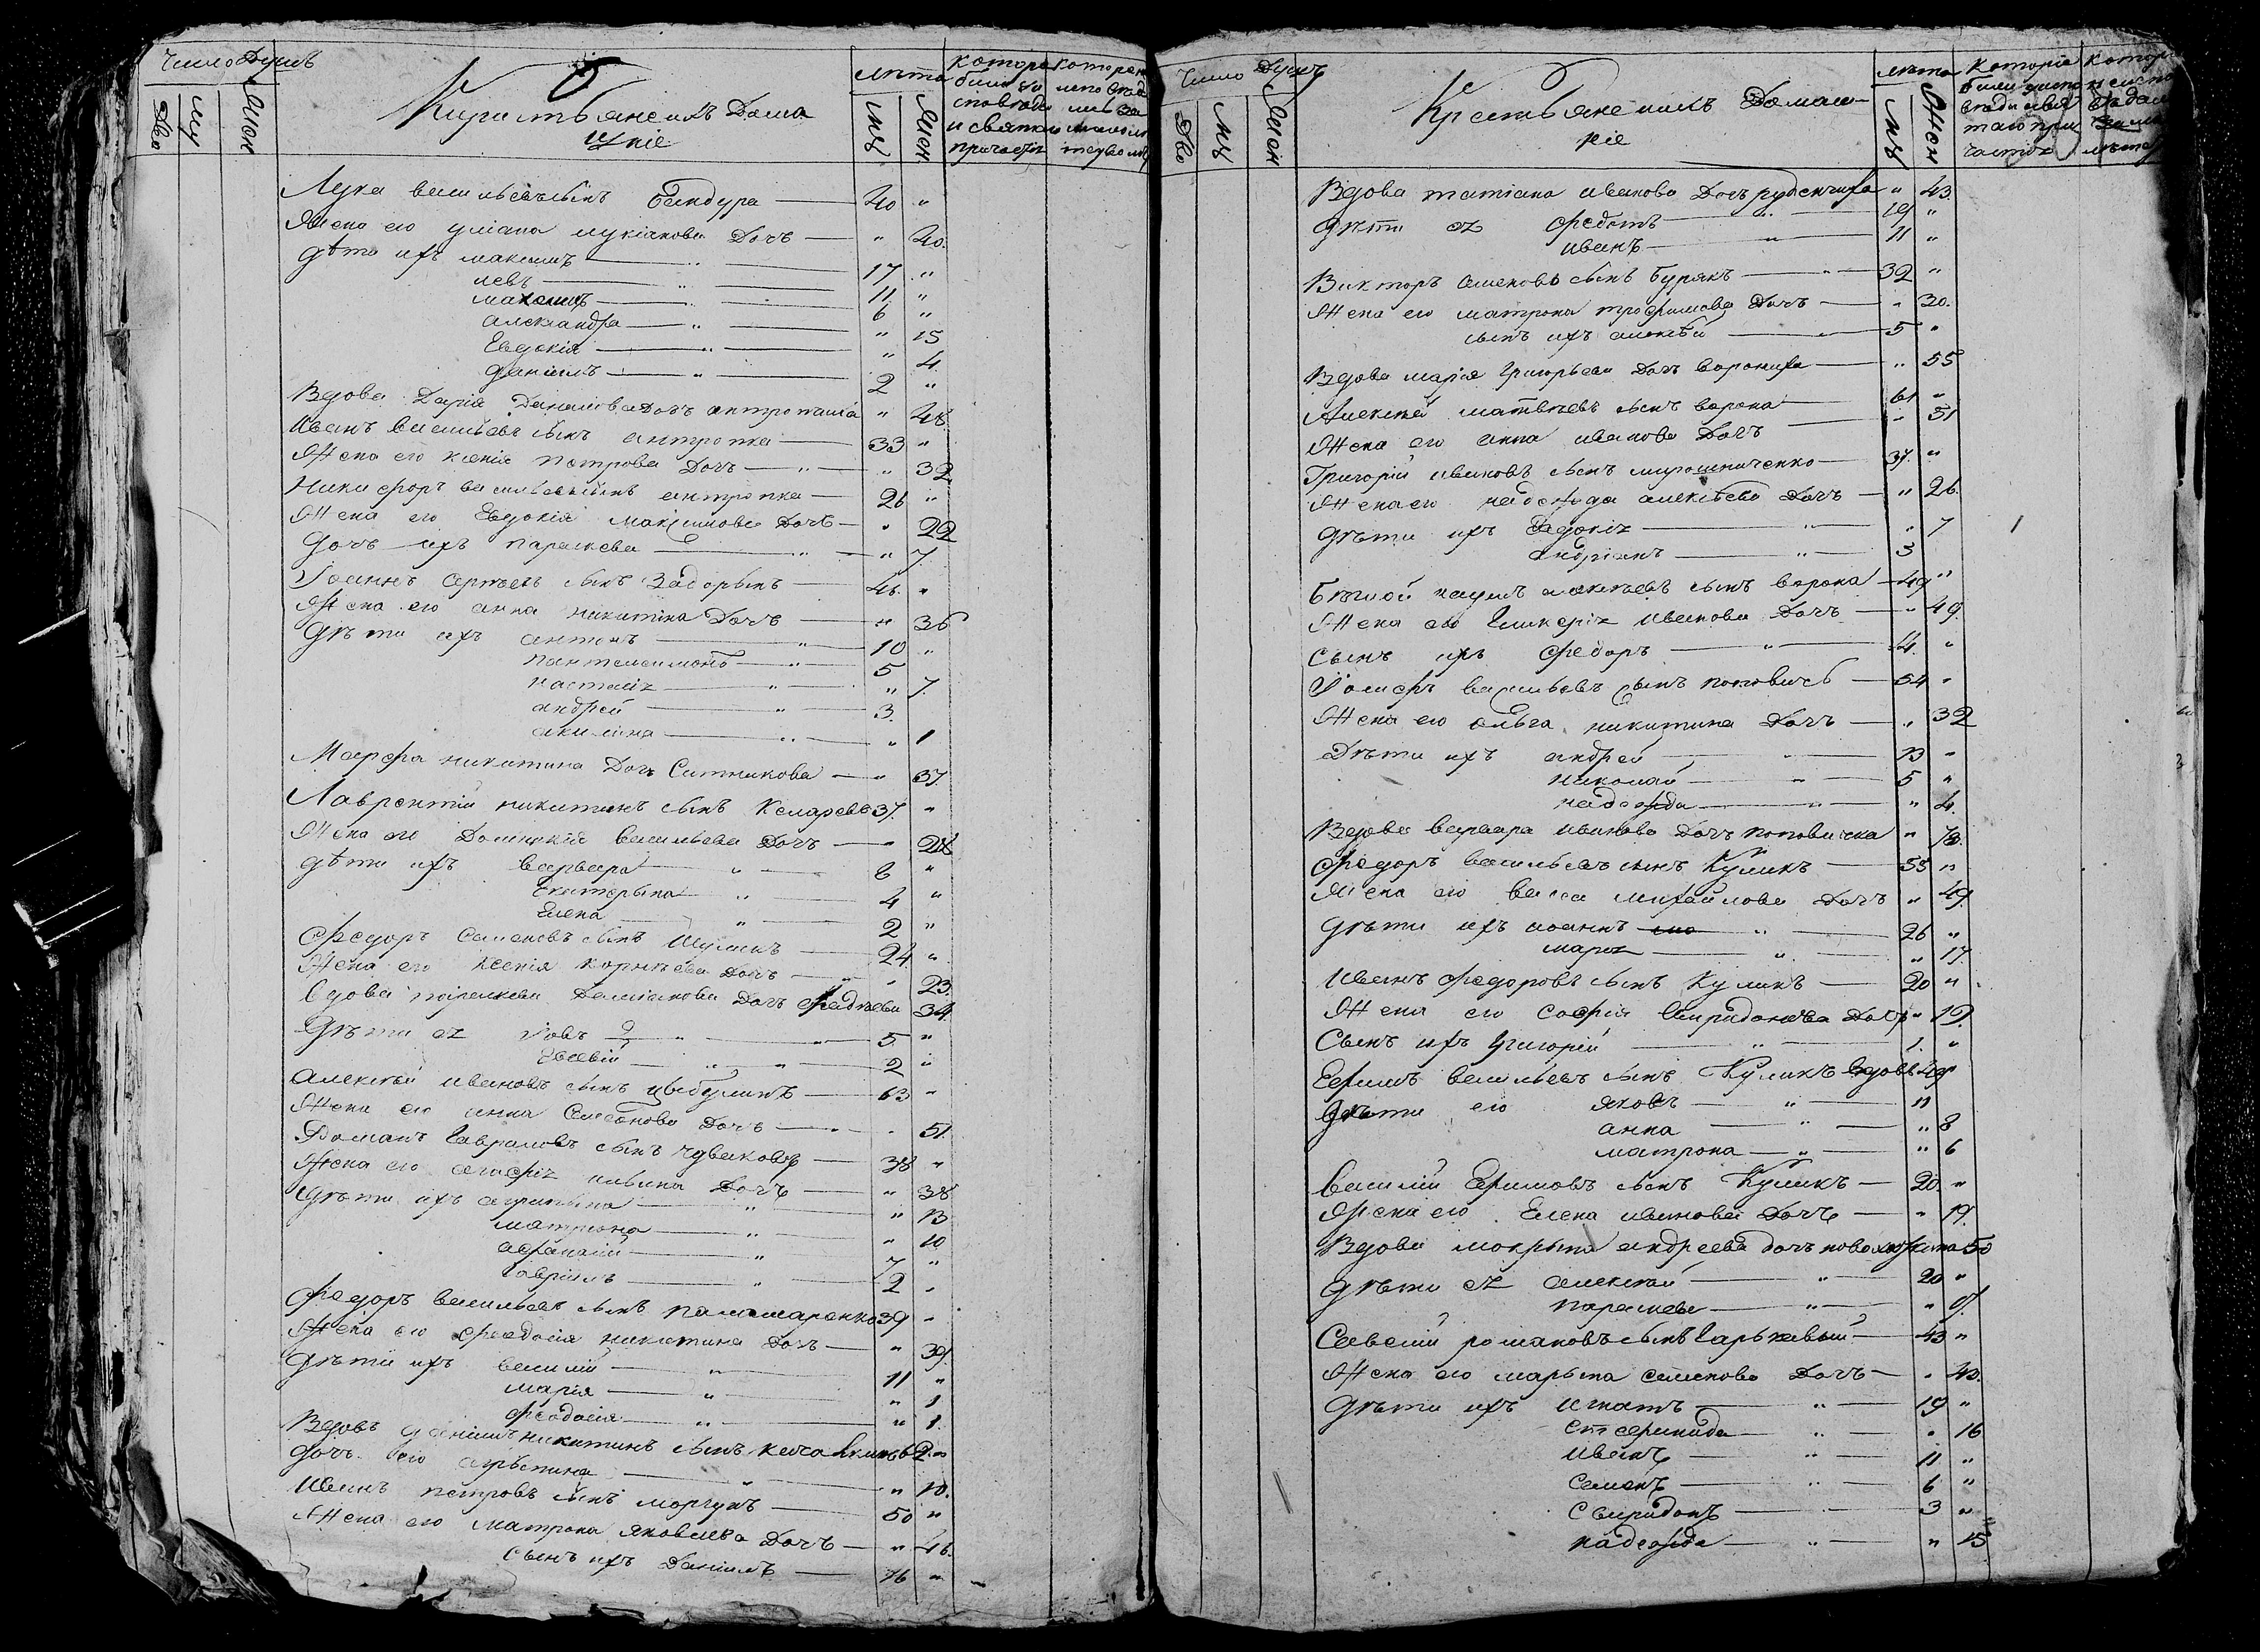 Число Душъ
Дво му жен
Кирестьяне ихъ Дома
шніе
лѣта
му жен
Лука васильевъ сынъ Бандура 40 "
Жена его уліана лукіанова Дочь " 40.
дѣти ихъ максимъ " 17 "
левъ " 11 "
максимъ " 6 "
александра " " 15
Евдокія " " 4
данилъ " 2 "
Вдова Дарія Данилова Дочь " 48
Иванъ Васильевъ сынъ антропка 33 "
Жена его ксенія Петрова Дочь " " 32
Никифоръ васильевъ сынъ антропка 26 "
Жена его Евдокія Максимова Дочь " 22
Дочь ихъ параскева " " 7
Іоаннъ Сергѣевъ сынъ 46 "
Жена его анна никитина Дочь " 36
Дѣти ихъ антонъ " 10 "
пантелеимонъ " 5
настасія " " 7
андрей " 3.
акилина " " 1
Марфа никитина Дочь Ситникова " 37.
Лаврентій никитинъ сынъ Комаревъ 37. "
Жена его Домникія васильева Дочь " 28
дѣти ихъ варвара " 6 "
Екатерына " 4 "
Елена " 2 "
Федоръ Семеновъ сынъ 24 "
Жена его ксенія корнѣева Дочь " " 23.
Вдова параскева Даміанова Дочь 34.
Дѣти ея іовъ " 5 "
Евсевій " 2 "
алексѣй ивановъ сынъ цыбулинъ 63 "
Жена его анна Семенова Дочь " 51.
Романъ Гавриловъ сынъ 38 "
Жена его агафія ильина Дочь " 38
дѣти ихъ агрипына " " 13
матрона " " 10
афанасій " 7 "
гавріилъ " 2 "
Федоръ васильевъ сынъ паламаренко 39 "
Жена его феодосія никитина Дочь " 39.
Дѣти ихъ василій " 11 "
марія " " 1
феодосія " " 1.
Вдовъ даніилъ никитинъ сынъ 62 "
дочь его агрыпина " " 10.
Иванъ петровъ сынъ моргунъ 50 "
Жена его матрона яковлева Дочь " 46.
сынъ ихъ Даніилъ 16 "
Число Душъ
Дво му жен
Крестьяне ихъ Домаш
ніе
лѣта
му жен
Вдова татіана иванова Дочь руденчиха " 43.
Дѣти ея федотъ " 19 "
иванъ " 11 "
Викторъ семеновъ сынъ Бурякъ " 32 "
Жена его матрона трофимова Дочь " 30.
сынъ ихъ алексѣй " 5 "
Вдова марія григорьева Дочь ворониха " 55
Алексѣй матвѣевъ сынъ ворона 61 "
Жена его анна иванова Дочь " 51
Григорій ивановъ сынъ мирошниченко 37. "
Жена его надежда алексѣева Дочь " 26.
дѣти ихъ Евдокія " " 7
андріанъ " 3
наумъ алексѣевъ сынъ ворона 49 "
Жена его Гликерія иванова Дочь " 49.
Сынъ ихъ федоръ " 14. "
Іосифъ васильевъ сынъ поповичъ 54 "
Жена его ольга никитина Дочь " 32
Дѣти ихъ андрей " 13 "
николай " 5 "
надежда " " 4.
Вдова варвара иванова Дочь поповичка " 78.
Федоръ васильевъ сынъ Куликъ 55 "
Жена его васса михайлова Дочь " 49.
дѣти ихъ иоаннъ " 26 "
марія " " 17.
Иванъ федоровъ сынъ куликъ 20 "
Жена его софія Спиридонова Дочь " 19.
Сынъ ихъ григорій " 1. "
Ефимъ васильевъ сынъ Куликъ вдовъ 49
Дѣти его яковъ " 11
анна " " 8
матрона " " 6
Василій Ефимовъ сынъ Куликъ 20. "
Жена его Елена иванова Дочь " 19.
Вдова мокрына андреева дочь 50
дѣти ея алексѣй " 20 "
параскева " "
Савелій романовъ сынъ Гарькавый 43 "
Жена его марьяна семенова Дочь " 40.
Дѣти ихъ игнатъ " 19 "
степанида " " 16
иванъ " 11 "
семенъ " 6 "
Спиридонъ " 3 "
надежда " " 15